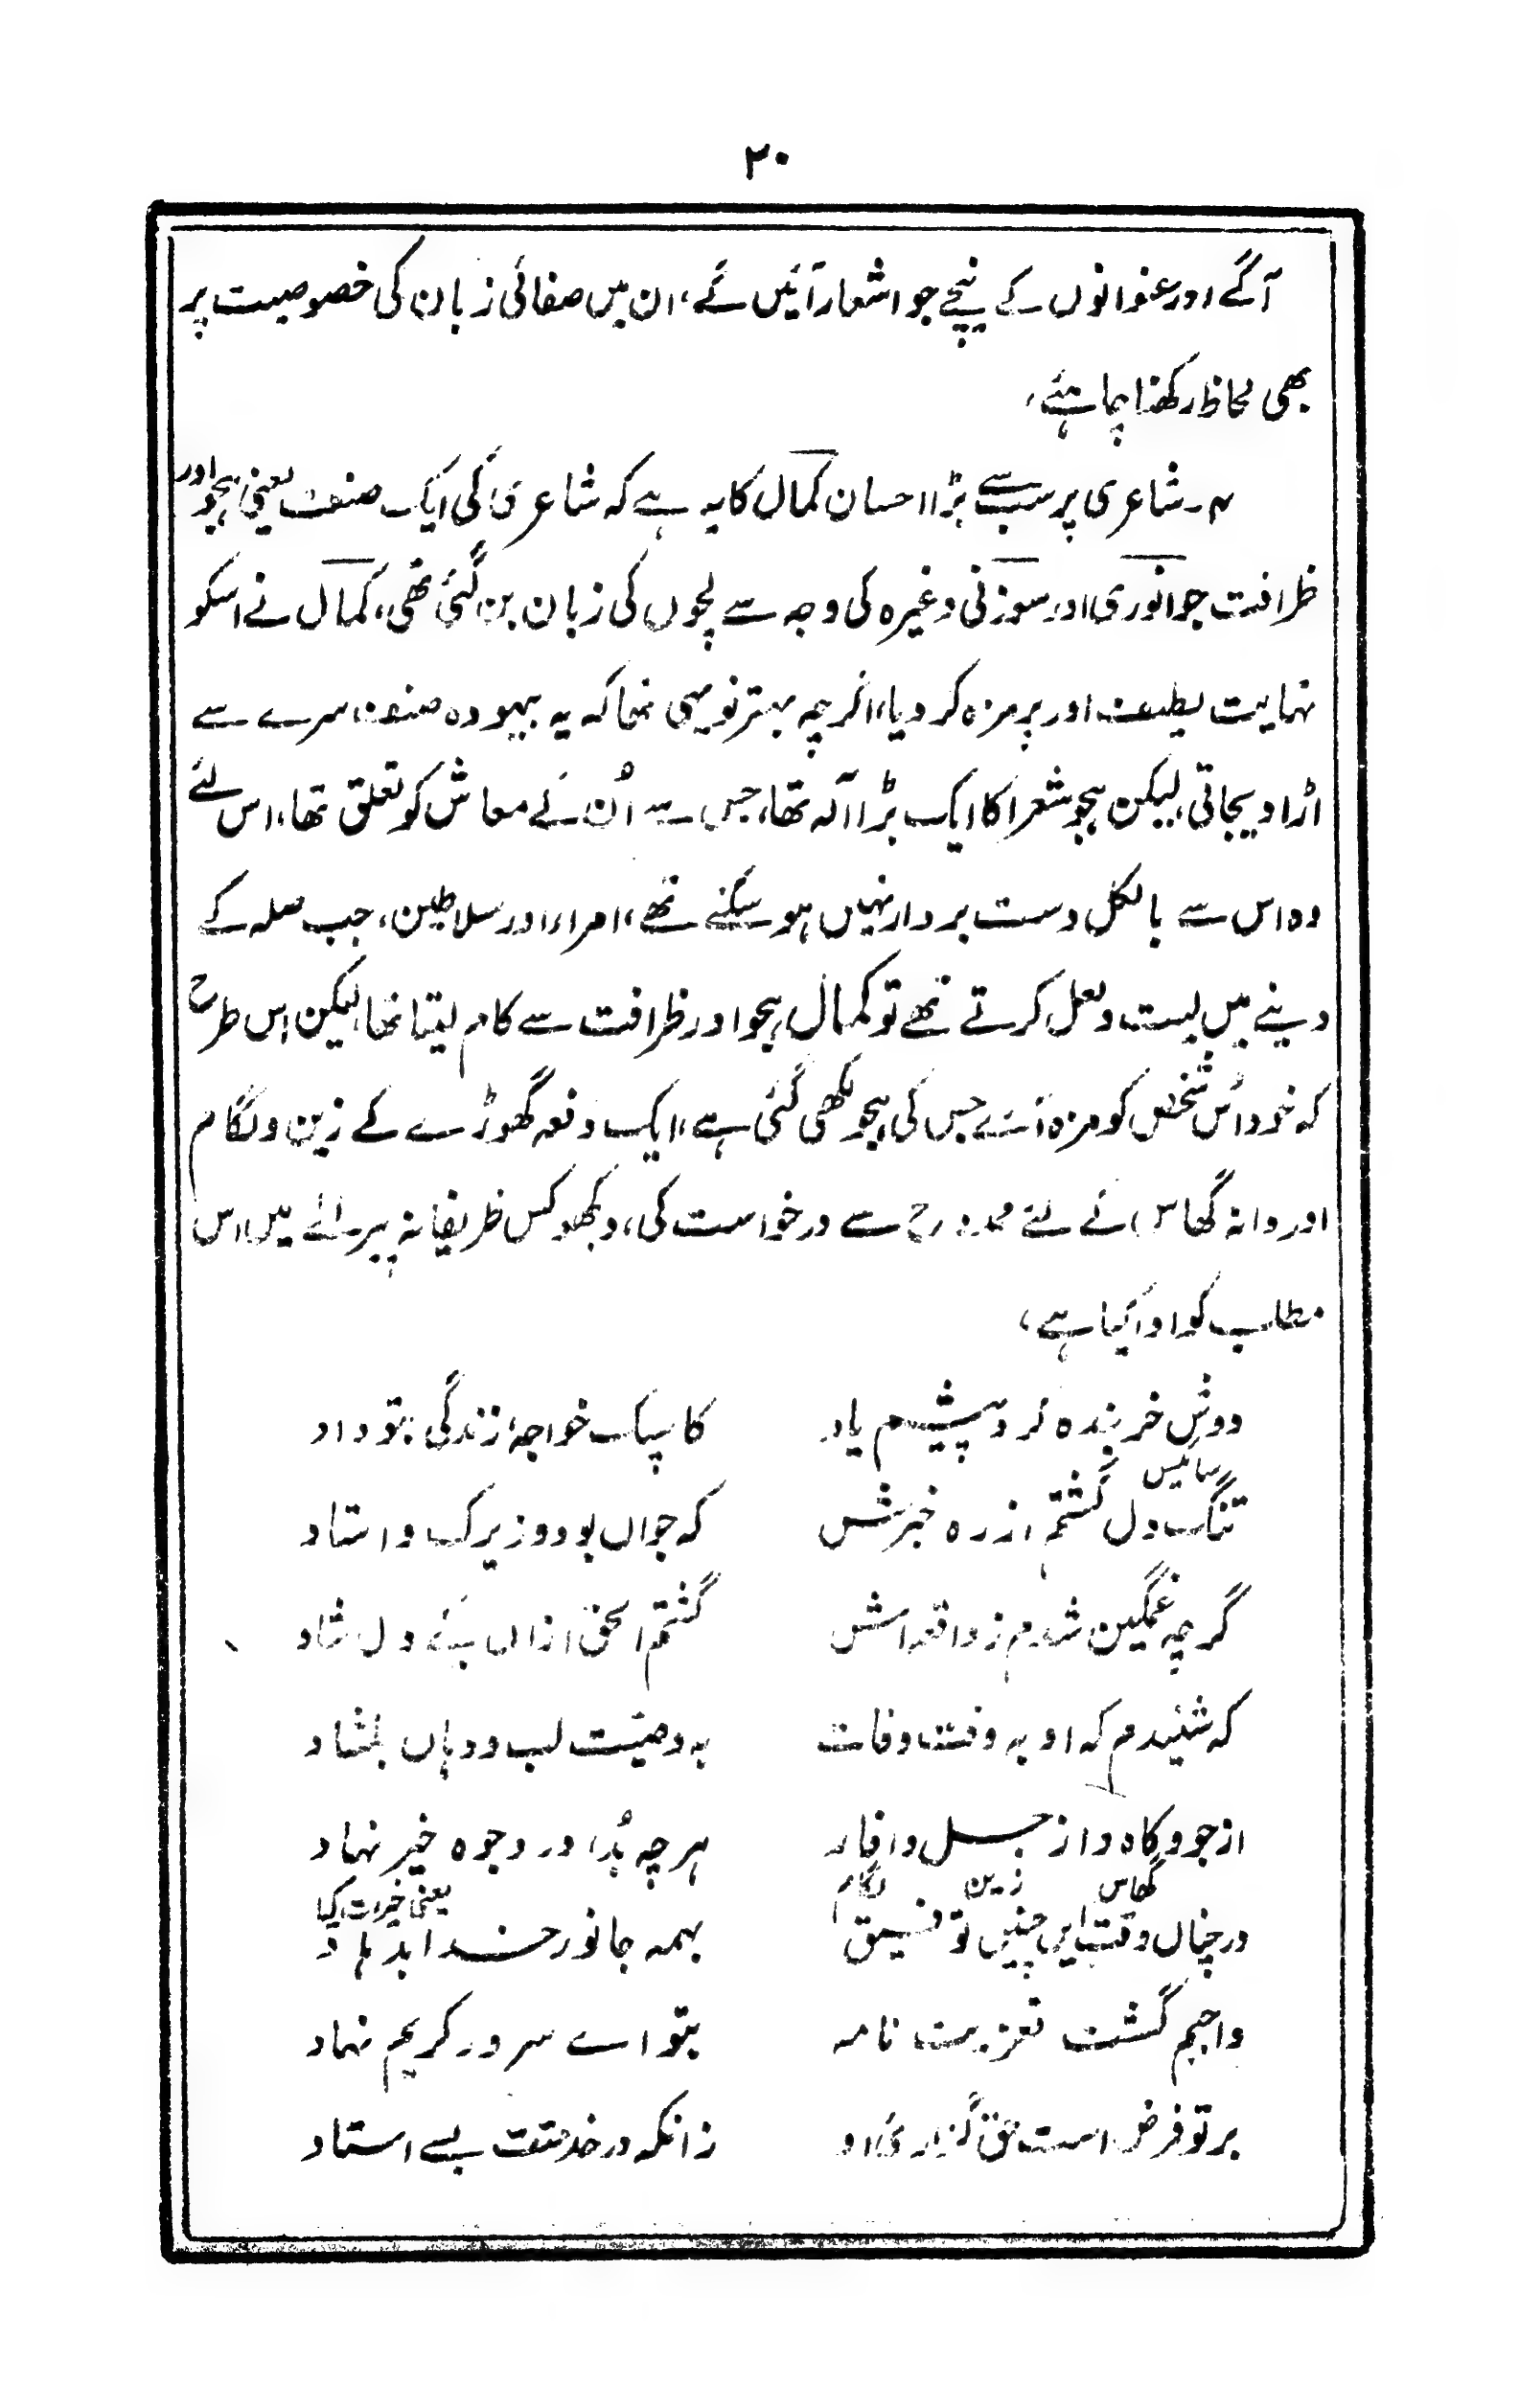 ۲۰
آگے اور عنوانوں کے نیچے جو اشعار آئیں گے، ان میں صفائی زبان کی خصوصیت پر
بھی لحاظ رکھنا چاہئے،
۴۔ شاعری پر سب سے بڑا احسان کمال کا یہ ہے کہ شاعری کی ایک صنف یعنی ہجو اور
ظرافت جو انوری اور سوزنی وغیرہ کی وجہ سے لچوں کی زبان بن گئی تھی، کمال نے اسکو
نہایت لطیف اور پر مزہ کر دیا، اگرچہ بہتر تو یہی تھا کہ یہ بیہودہ صنف سرے سے
اڑا دیجاتی، لیکن ہجو شعرا کا ایک بڑا آلہ تھا، جس سے اُن کے معاش کو تعلق تھا، اس لئے
وہ اس سے بالکل دست بردار نہیں ہو سکتے تھے، امراء اور سلاطین، جب صلہ کے
دینے میں لیت و لعل کرتے تھے تو کمال ہجو اور ظرافت سے کام لیتا تھا، لیکن اس طرح
کہ خود اُس شخص کو مزہ آئے جس کی ہجو لکھی گئی ہے، ایک دفعہ گھوڑے کے زین و لگام
اور دانہ گھاس کے لئے ممدوح سے درخواست کی، دیکھو کس ظریفانہ پیرائے میں اس
مطلب کو ادا کیا ہے،
دوش خربندہ کرد پیشم یاد کاسپک خواجہ زندگی بتو داد
سائیس
تنگ دل گشتم از رہ خبرش کہ جواں بود و زیرک و استاد
گرچہ غمگین شدم ز واقعہ اش گشتم الحق ازاں یکے دل شاد
کہ شنیدم کہ او بہ وقت وفات بہ وصیت لب و دہاں بکشاد
از جو و کاہ و از جل و افسار ہرچہ بُد او در وجوہ خیر نہاد
گھاس زین لگام یعنی خیرات کیا
در چناں وقت ایں چنیں توفیق ہمہ جانور خدا بدہاد
واجبم گشت تعزیت نامہ بتو اے سرور کریم نہاد
بر تو فرض است حق گزاری او زانکہ در خدمتت بسے استاد